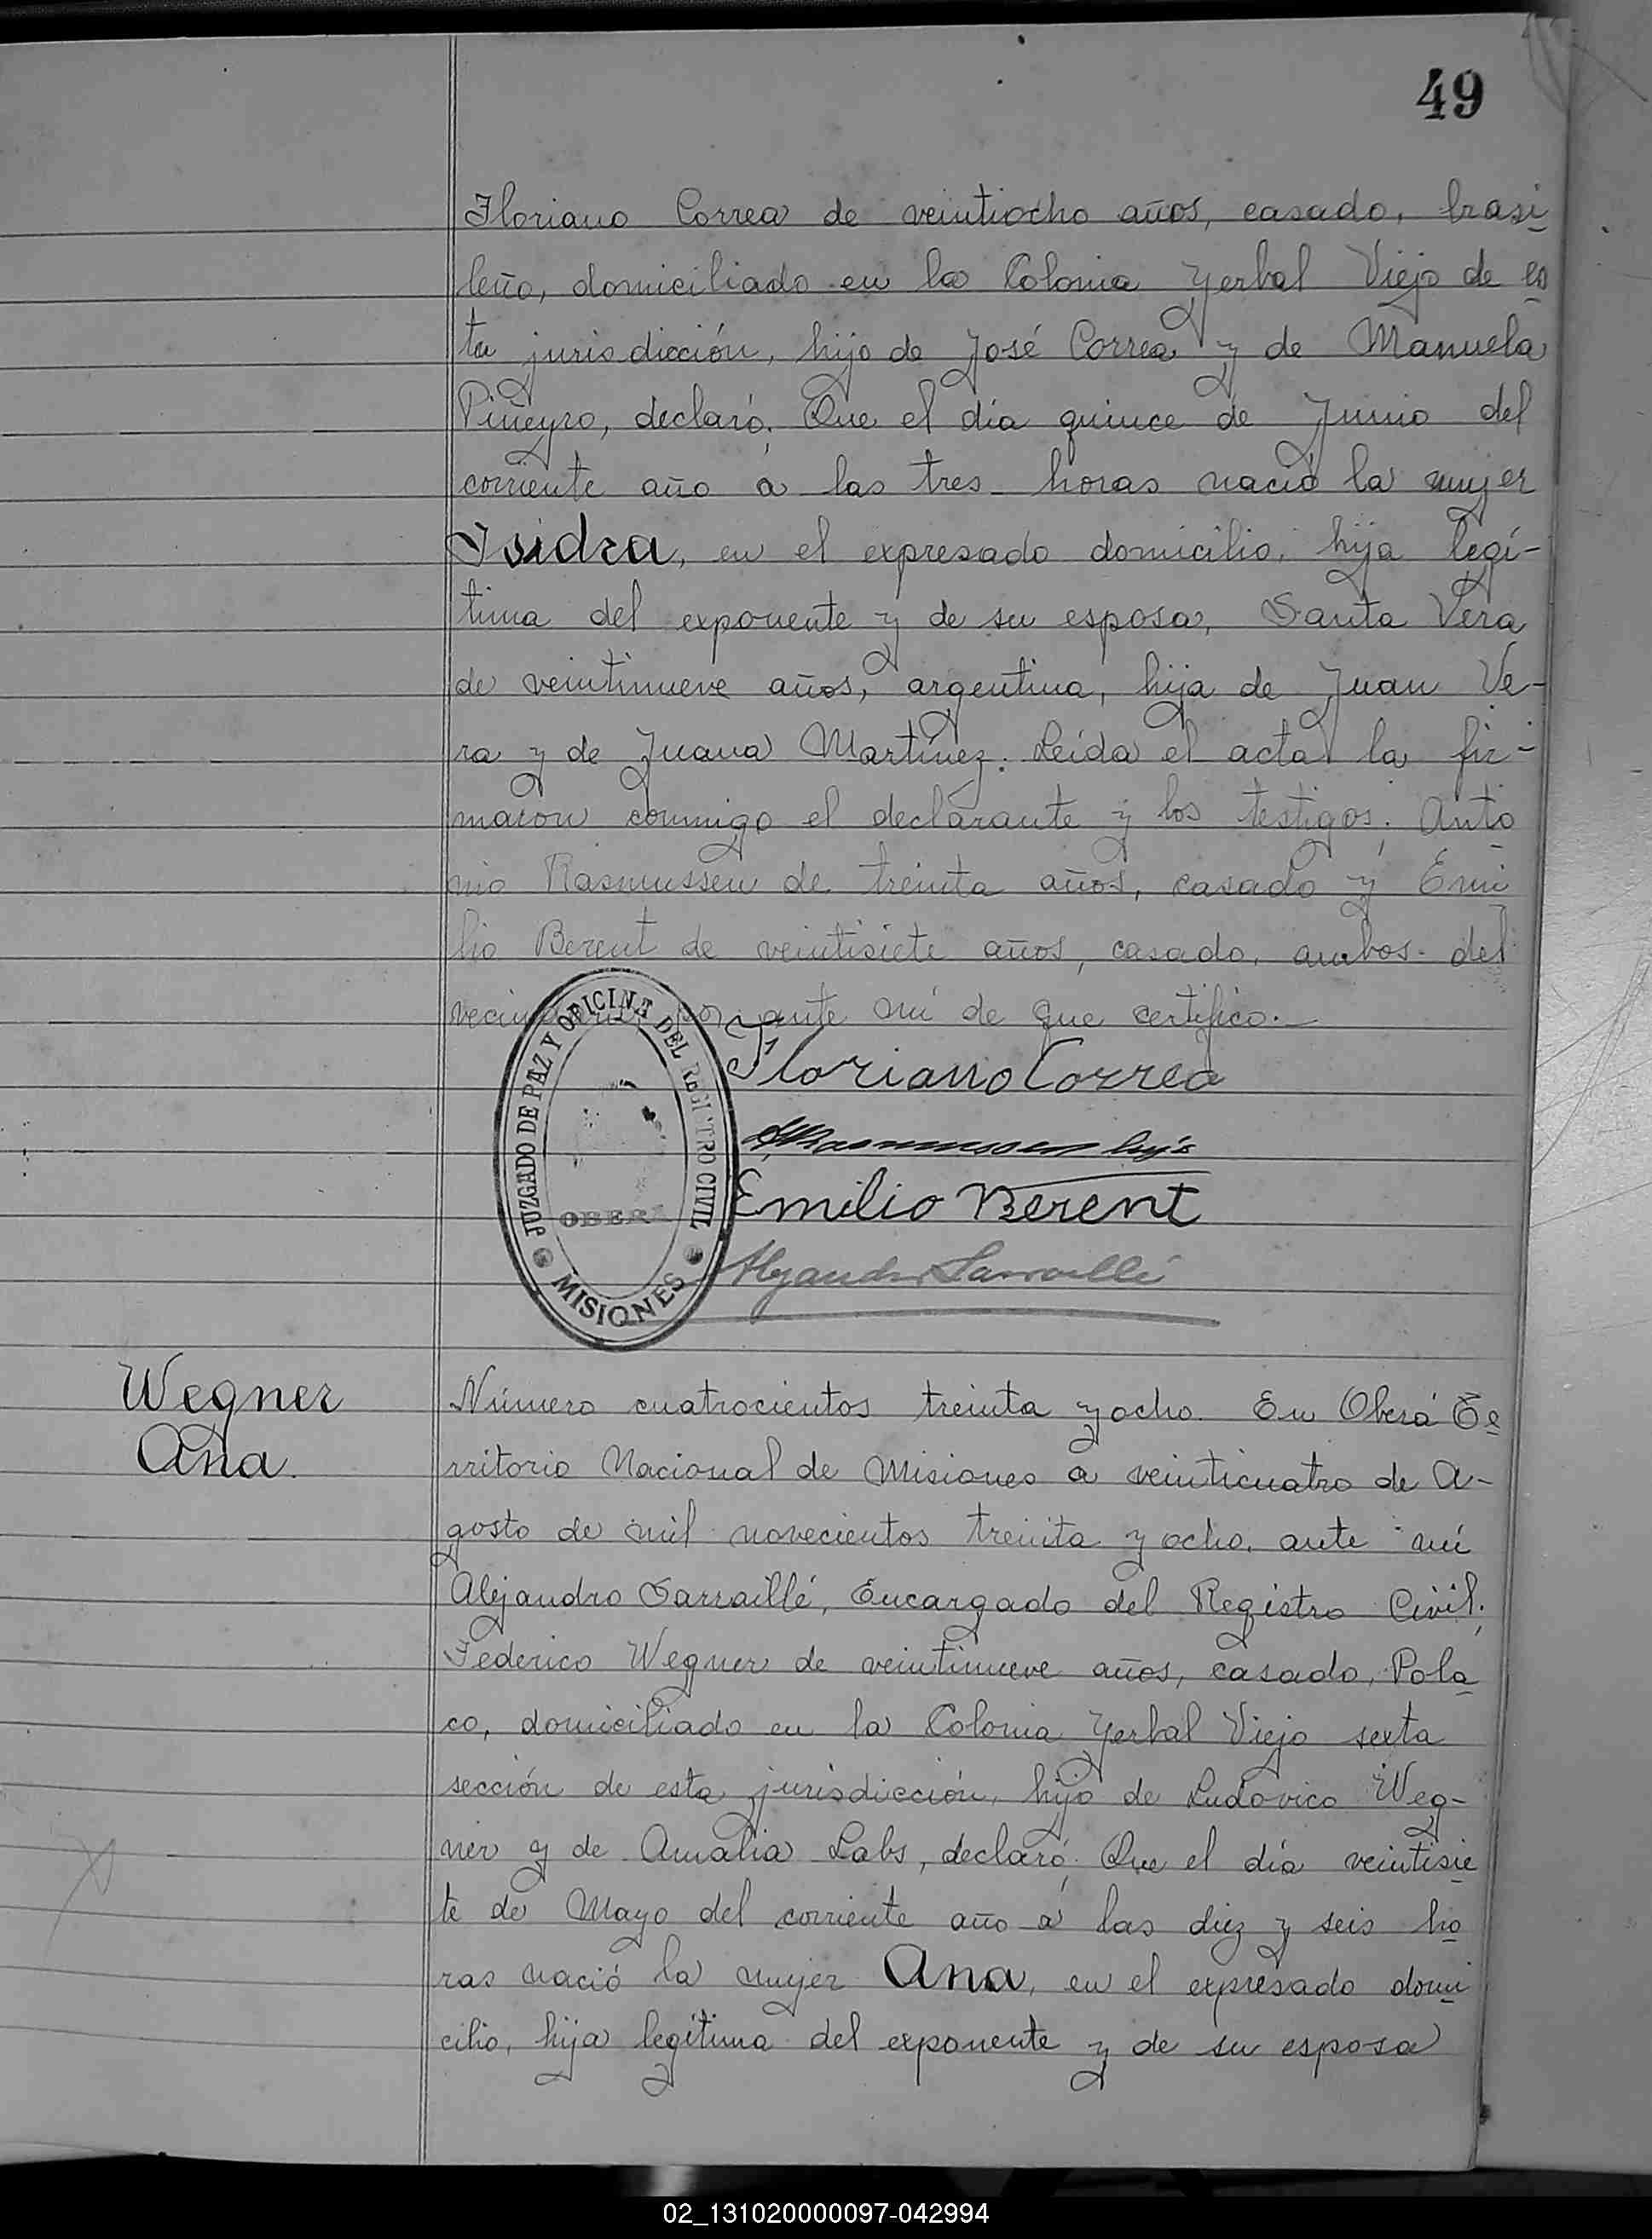 49
Floriano Correa de veintiocho años, casado, brasi
leño, domiciliado en la Colonia Yerbal Viejo de es
ta jurisdicción, hijo de José Correa y de Manuela
Piñeyro, declaró: Que el día quince de Junio del
corriente año á las tres horas nació la mujer
Isidra, en el expresado domicilio, hija legí-
tima del exponente y de su esposa, Santa Vera
de veintinueve años, argentina, hija de Juan Ve-
ra y de Juana Martínez. Leída el acta la fir-
maron conmigo el declarante y los testigos: Anto
nio Rasmussen de treinta años, casado y Emi
lio Berent de veintisiete años, casado, ambos del
por ante mí de que certifico.
Floriano Correa
Rasmussen hijo
Emilio Berent
Alejandro Sarraillé
JUZGADO DE PAZ Y OFICINA DEL REGISTRO CIVIL
OBERA
MISIONES
Wegner
Ana.
Número cuatrocientos treinta y ocho. En Oberá Te
rritorio Nacional de Misiones a veinticuatro de A-
gosto de mil novecientos treinta y ocho, ante mí
Alejandro Sarraillé, Encargado del Registro Civil;
Federico Wegner de veintinueve años, casado, Pola
co, domiciliado en la Colonia Yerbal Viejo sexta
sección de esta jurisdicción, hijo de Ludovico Weg-
ner y de Amalia Labs, declaró: Que el día veintisie
te de Mayo del corriente año á las diez y seis ho
ras nació la mujer Ana, en el expresado domi
cilio, hija legítima del exponente y de su esposa
02_131020000097-042994